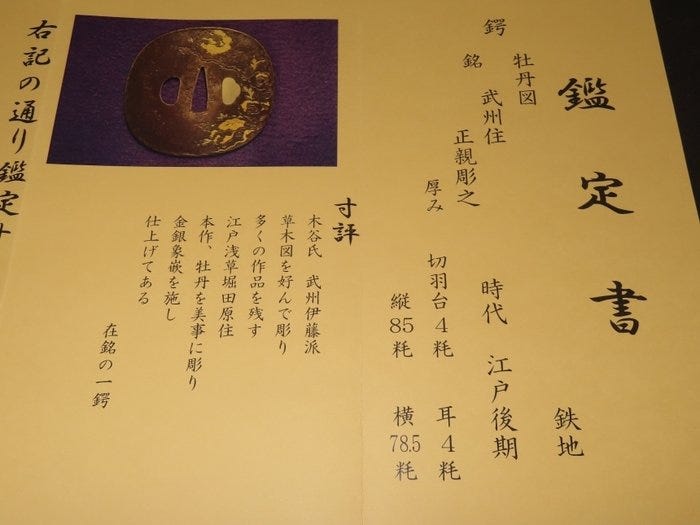 鑑定書
鍔
牡丹図 鉄地
銘 武州住 正親彫之
時代 江戸後期
厚み 切羽台4粍 耳4粍
縦85粍 横78.5粍
寸評
木谷氏 武州伊藤派
草木図を好んで彫り
多くの作品を残す
江戸浅草堀田原住
本作、牡丹を美事に彫り
金銀象嵌を施し
仕上げてある
在銘の一鍔
右記の通り鑑定